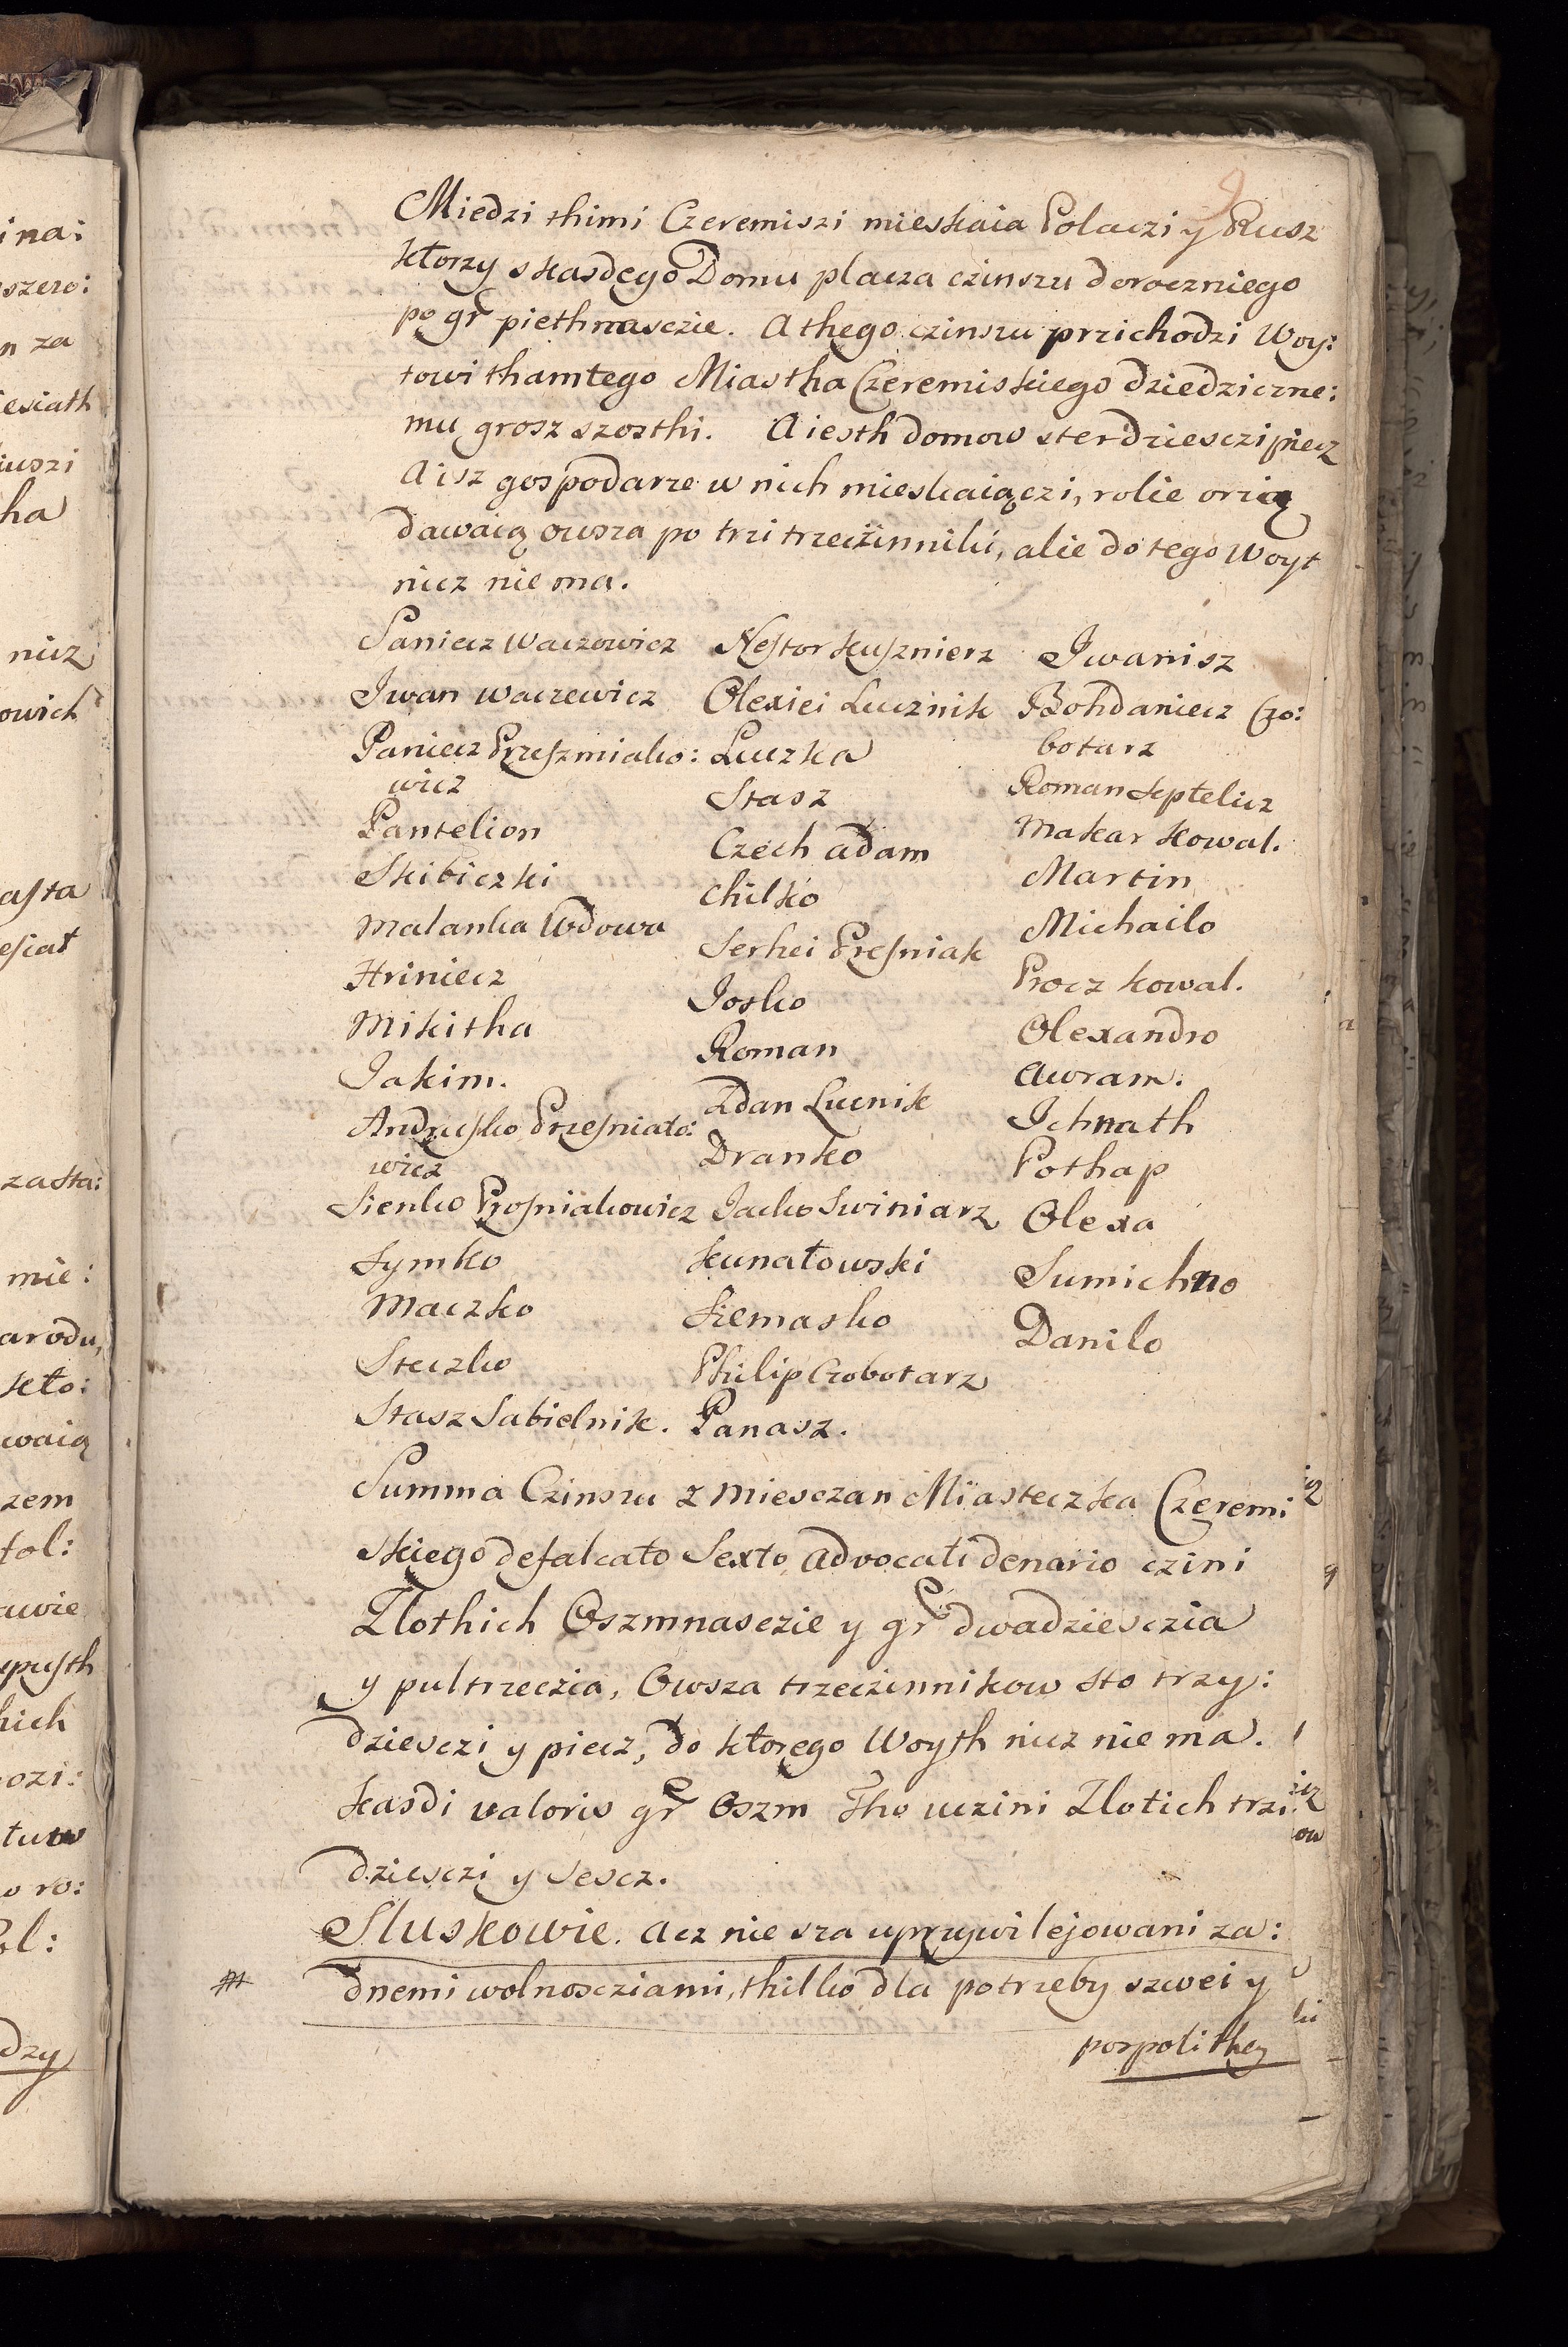 9
Miedzi thimi Czeremiszi mieskaia Polaczi y Rusz
ktorzy skasdego Domu placza czinszu doroczniego
po gr piethnasczie. A thego czinszu przichodzi Woy:
towi thamtego Miastha Czeremiskiego dziedziczne:
mu grosz szosthi. A iesth domow sterdziesczi piecz
A isz gospodarze w nich mieskaiączi, rolie orią
dawaią owsza po trzi trzeczinniki, alie do tego Woyt
nicz nie ma.
Paniecz Waczowicz
Iwan Waczewicz
Paniecz Przeszmiako:
wicz
Pantelion
Skibiczki
Malanka Wdowa
Hriniecz
Mikitha
Iakim.
Andrusko Przesniako:
wicz
Sienko Prosniakowicz
Symko
Maczko
Steczko
Stasz Sabielnik.
Nestor kusznierz
Olexiei Lucznik
Luczka
Stasz
Czech adam
Chilko
Serhei Presniak
Iosko
Roman
Zdan Lucnik
Dranko
Iacko Swiniarz
kunatowski
Siemasko
Philip Czobotarz
Panasz.
Iwanisz
Bohdaniecz Czo:
botarz
Roman Septelicz
Makar kowal.
Martin
Michailo
Procz kowal.
Olexandro
Awram.
Ichnath
Pothap
Olexa
Sumichno
Danilo
Summa Czinszu z Miesczan Miasteczka Czeremi
skiego defalcato Sexto advocati denario czini
Zlothich Oszmnasczie y gr dwadziesczia
y pultrzeczia, Owsza trzeczinnikow sto trzy:
dziesczi y piecz, do ktorego Woyth nicz nie ma.
kasdi valoris gr Oszm Tho uczini Zlotich trzi:
dziesczi y sescz.
Sluskowie. Acz nie sza uprzywilejowani za:
dnemi wolnoscziami, thilko dla potrzeby szwei y
pospolithey